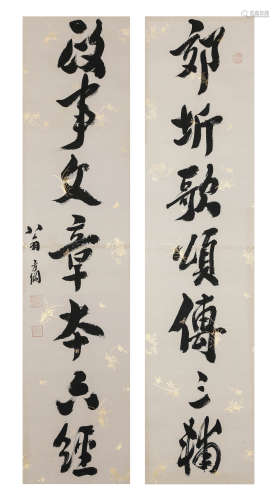 郊圻歌頌傳三輔
政事文章本六經
翁方綱